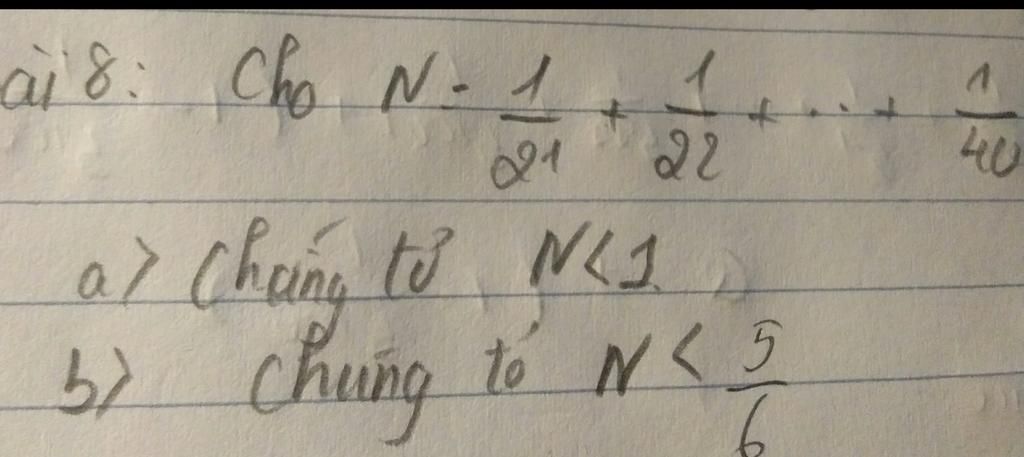 ài 8: Cho N = 1/21 + 1/22 + ... + 1/40
a) Chứng tỏ N < 1
b) Chứng tỏ N < 5/6